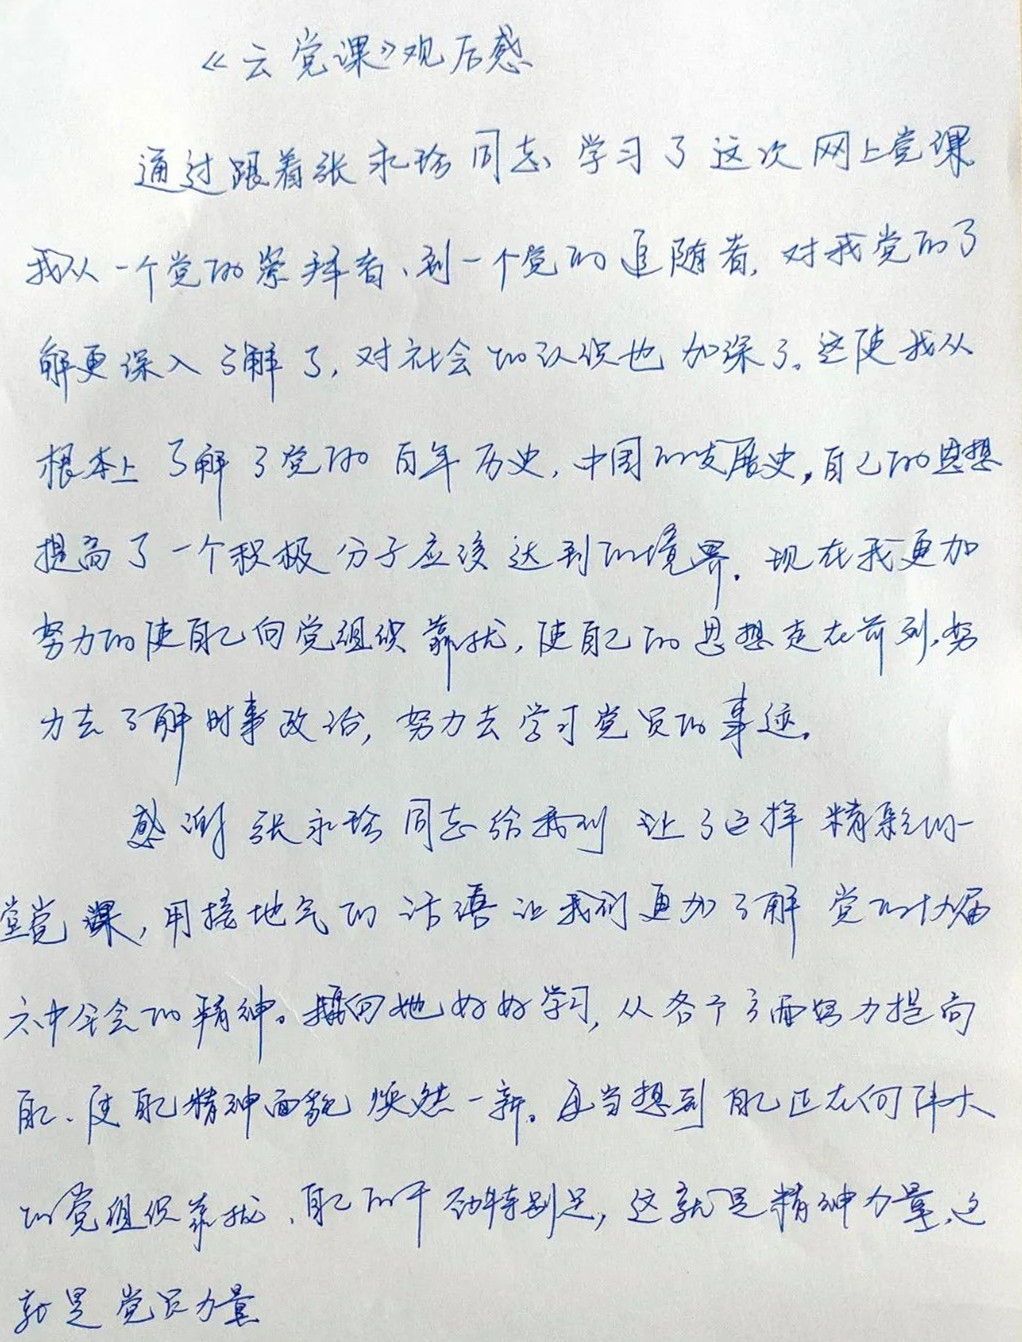 《云党课》观后感
通过跟着张永珍同志、学习了这次网上党课
我从一个党的崇拜者、到一个党的追随者，对我党的了
解更深入了解了，对社会的认识也加深了。这使我从
根本上了解了党的百年历史，中国的发展史，自己的思想
提高了一个积极分子应该达到的境界。现在我更加
努力的使自己向党组织靠扰，使自己的思想走在前列，努
力去了解时事政治，努力去学习党员的事迹。
感谢张永珍同志给我们让了这样精彩的一
堂党课，用接地气的话语让我们更加了解党的十九届
六中全会的精神。我向她好好学习，从各个方面努力提高
自己、使自己精神面貌焕然一新。每当想到自己正在向伟大
的党组织靠扰、自己的干劲特别足，这就是精神力量、这
就是党员力量